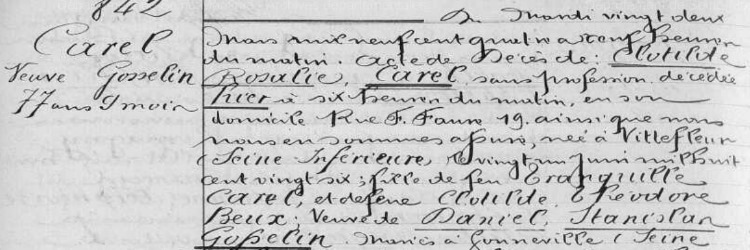 842
Carel
Veuve Gosselin
77 ans 9 mois
Du Mardi vingt deux
Mars mil neuf cent quatre à neuf heures
du matin. Acte de Décès de : Clotilde
Rosalie, Carel, sans profession décédée
hier à six heures du matin, en son
domicile Rue F. Faure 19. ainsi que nous
nous en sommes assuré, née à Villefleur
(Seine Inférieure, le vingt un Juin mil huit
cent vingt six ; fille de feu Tranquille
Carel, et de feue Clotilde, Théodore
Beux ; Veuve de Daniel, Stanislas
Gosselin. Mariés à Gonneville (Seine